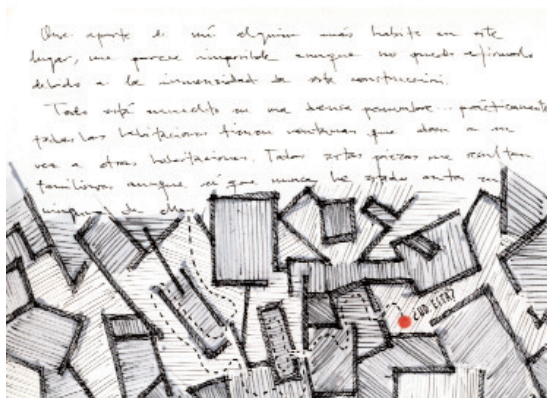 Que aparte de mí alguien más habite en este
lugar, me parece imposible aunque no puedo afirmarlo
debido a la inmensidad de esta construcción.
Todo está envuelto en una densa penumbra... prácticamente
todas las habitaciones tienen ventanas que dan a su
vez a otras habitaciones. Todas estas piezas me resultan
familiares aunque sé que nunca he estado antes en
ninguna de ellas